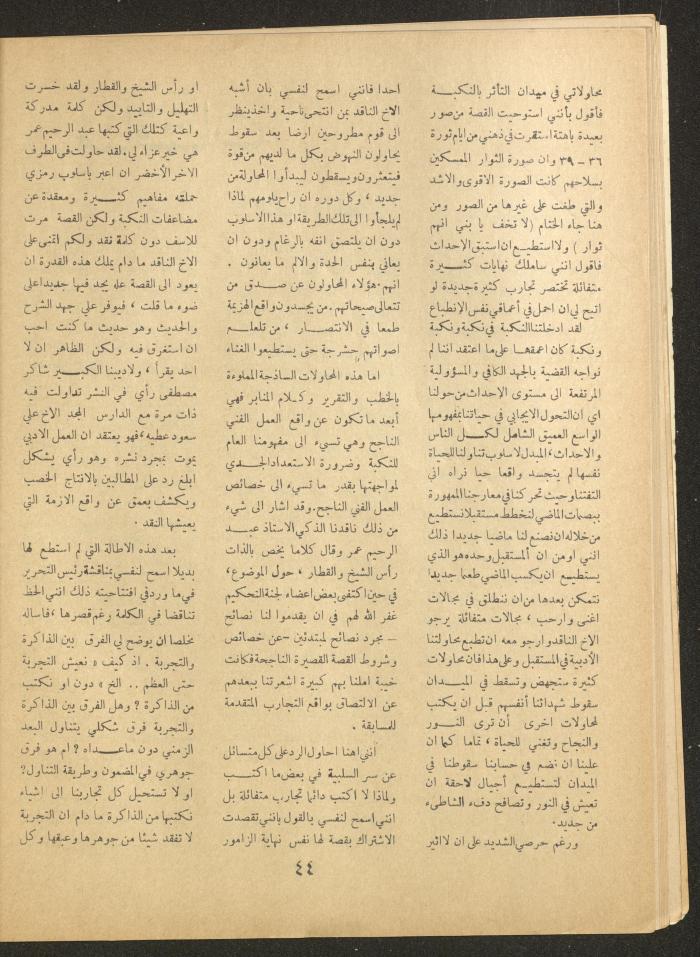 محاولاتي في ميدان التأثر بالنكبة
فأقول بأنني استوحيت القصة من صور
بعيدة باهتة استقرت في ذهني من ايام ثورة
٣٦ - ٣٩ وان صورة الثوار الممسكين
بسلاحهم كانت الصورة الاقوى والاشد
والتي طغت على غيرها من الصور ومن
هنا جاء الختام (لا تخف يا بني انهم
ثوار ) ولا استطيع ان استبق الاحداث
فاقول انني ساملك نهايات كثيرة
متفائلة تختصر تجارب كثيرة جديدة لو
اتيح لي ان احمل في أعماقي نفس الانطباع
لقد ادخلتنا النكبة في نكبة ونكبة
ونكبة كان اعمقها على ما اعتقد اننا لم
نواجه القضية بالجهد الكافي والمسؤولية
المرتفعة الى مستوى الاحداث من حولنا
اي ان التحول الايجابي في حياتنا بمفهومها
الواسع العميق الشامل لكل الناس
والاحداث، المبدل لاسلوب تناولنا للحياة
نفسها لم يتجسد واقعا حيا نراه انى
التفتنا وحيث تحركنا في معارجنا الممهورة
ببصمات الماضي لنخطط مستقبلا نستطيع
من خلاله ان نصنع لنا ماضيا جديدا ذلك
انني اومن ان المستقبل وحده هو الذي
يستطيع ان يكسب الماضي طعما جديدا
نتمكن بعدها من ان ننطلق في مجالات
اغنى وارحب ، مجالات متفائلة يرجو
الاخ الناقد وارجو معه ان تطبع محاولتنا
الأدبية في المستقبل وعلى هذا فان محاولات
كثيرة ستجهض وتسقط في الميدان
سقوط شهدائنا أنفسهم قبل ان يكتب
لمحاولات اخرى أن ترى النور
والنجاح وتغني للحياة ، تماما كما ان
علينا ان نضع في حسابنا سقوطنا في
الميدان لتستطيع أجيال لاحقة ان
تعيش في النور وتصافح دفء الشاطىء
من جديد.
ورغم حرصي الشديد على ان لا اثير
احدا فانني اسمح لنفسي بان أشبه
الاخ الناقد بمن انتحى ناحية واخذ ينظر
الى قوم مطروحين ارضا بعد سقوط
يحاولون النهوض بكل ما لديهم من قوة
فيتعثرون ويسقطون ليبدأوا المحاولة من
جديد ، وكل دوره ان راح يلومهم لماذا
لم يلجأوا الى تلك الطريقة او هذا الاسلوب
دون ان يلتصق انفه بالرغام ودون ان
يعاني بنفس الحدة والالم ما يعانون .
انهم . هؤلاء المحاولون عن صدق من
تتعالى صيحاتهم . من يجسدون واقع الهزيمة
طمعا في الانتصار ، من تلعلم
اصواتهم حشرجة حتى يستطيعوا الغناء
اما هذه المحاولات الساذجة المملوءة
بالخطب والتقرير وكلام المنابر فهي
أبعد ما تكون عن واقع العمل الفني
الناجح وهي تسيء الى مفهومنا العام
للنكبة وضرورة الاستعداد الجدي
لمواجهتها بقدر ما تسيء الى خصائص
العمل الفني الناجح. وقد اشار الى شيء
من ذلك ناقدنا الذكي الاستاذ عبد
الرحيم عمر وقال كلاما يخص بالذات
رأس الشيخ والقطار ، حول الموضوع،
في حين اكتفى بعض اعضاء لجنة التحكيم
غفر الله لهم في ان يقدموا لنا نصائح
- مجرد نصائح لمبتدئين - عن خصائص
وشروط القصة القصيرة الناجحة فكانت
خيبة املنا بهم كبيرة اشعرتنا ببعدهم
عن الالتصاق بواقع التجارب المتقدمة
للمسابقة .
انني هنا احاول الرد على كل متسائل
عن سر السلبية في بعض ما اكتب
ولماذا لا اكتب دائما تجارب متفائلة بل
انني اسمح لنفسي بالقول بانني تقصدت
الاشتراك بقصة لها نفس نهاية الزامور
او رأس الشيخ والقطار ولقد خسرت
التهليل والتاييد ولكن كلمة مدركة
واعية كتلك التي كتبها عبد الرحيم عمر
هي خير عزاء لي. لقد حاولت في الطرف
الاخر الأخضر ان اعبر باسلوب رمزي
حملته مفاهيم كثيرة ومعقدة عن
مضاعفات النكبة ولكن القصة مرت
للاسف دون كلمة نقد ولكم اتمنى على
الاخ الناقد ما دام يملك هذه القدرة ان
يعود الى القصة عله يجد فيها جديدا على
ضوء ما قلت ، فيوفر علي جهد الشرح
والحديث وهو حديث ما كنت احب
ان استغرق فيه ولكن الظاهر ان لا
احد يقرأ ، ولاديبنا الكبير شاكر
مصطفى رأي في النشر تداولت فيه
ذات مرة مع الدارس المجد الاخ علي
سعود عطيه، فهو يعتقد ان العمل الادبي
يموت بمجرد نشره وهو رأي يشكل
ابلغ رد على المطالبين بالانتاج الخصب
ويكشف بعمق عن واقع الازمة التي
يعيشها النقد .
بعد هذه الاطالة التي لم استطع لها
بديلا اسمح لنفسي بمناقشة رئيس التحرير
في ما ورد في افتتاحيته ذلك انني الحظ
تناقضا في الكلمة رغم قصرها ، فاساله
مخلصا ان يوضح لي الفرق بين الذاكرة
والتجربة . اذ كيف « نعيش التجربة
حتى العظم .. الخ » دون او نكتب
من الذاكرة ؟ وهل الفرق بين الذاكرة
والتجربة فرق شكلي يتناول البعد
الزمني دون ما عداه ؟ ام هو فرق
جوهري في المضمون وطريقة التناول؟
او لا تستحيل كل تجاربنا الى اشياء
نكتبها من الذاكرة ما دام ان التجربة
لا تفقد شيئا من جوهرها وعبقها وكل
٤٤